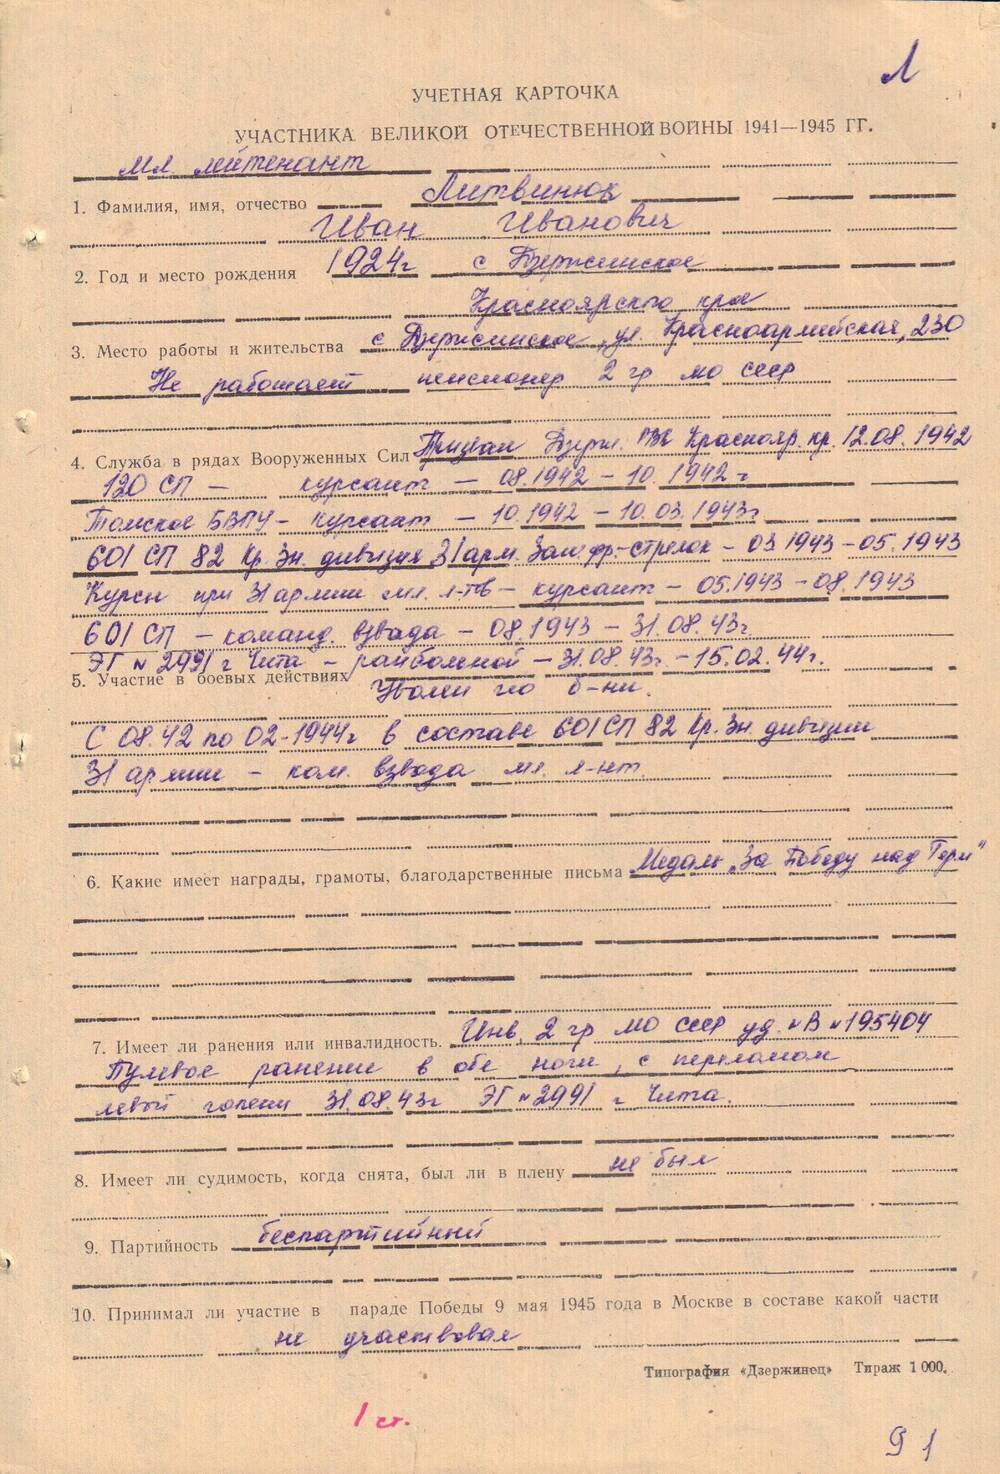 Л
УЧЕТНАЯ КАРТОЧКА
УЧАСТНИКА ВЕЛИКОЙ ОТЕЧЕСТВЕННОЙ ВОЙНЫ 1941—1945 ГГ.
Мл. лейтенант
1. Фамилия, имя, отчество Литвинюк
Иван Иванович
2. Год и место рождения 1924г с Дзержинское
Красноярского края
3. Место работы и жительства с Дзержинское, ул. Красноармейская, 230
Не работает пенсионер 2 гр МО СССР
4. Служба в рядах Вооруженных Сил Призван Дзерж. РВК Краснояр. кр. 12.08.1942
120 СП — курсант — 08.1942 — 10.1942 г
Томское БВПУ — курсант — 10.1942 — 10.03.1943г
601 СП 82 Кр. Зн. дивизия 31 арм. Зап. фр. — стрелок — 03.1943 — 05.1943
Курсы при 31 армии мл. л-тв — курсант — 05.1943 — 08.1943
601 СП — команд. взвода — 08.1943 — 31.08.43г.
ЭГ № 2991 г Чита — ранбольной — 31.08.43г. — 15.02.44г.
5. Участие в боевых действиях Уволен по б-ни.
С 08.42 по 02-1944г в составе 601 СП 82 Кр. Зн. дивизии
31 армии — ком. взвода мл. л-нт.
6. Какие имеет награды, грамоты, благодарственные письма Медаль „За Победу над Герм"
7. Имеет ли ранения или инвалидность. Инв. 2 гр МО СССР уд. №В №195404
Пулевое ранение в обе ноги, с переломом
левой голени 31.08.43г ЭГ №2991 г Чита.
8. Имеет ли судимость, когда снята, был ли в плену не был
9. Партийность беспартийный
10. Принимал ли участие в параде Победы 9 мая 1945 года в Москве в составе какой части
не участвовал
Типография «Дзержинец» Тираж 1 000.
1 ст.
91